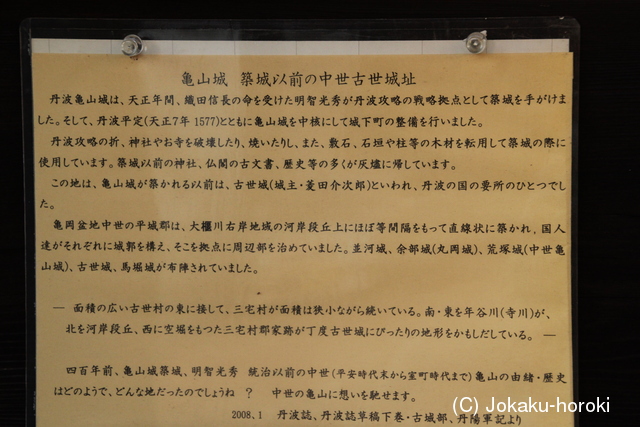 亀山城 築城以前の中世古世城址
丹波亀山城は、天正年間、織田信長の命を受けた明智光秀が丹波攻略の戦略拠点として築城を手がけま
した。そして、丹波平定(天正7年 1577)とともに亀山城を中核にして城下町の整備を行いました。
丹波攻略の折、神社やお寺を破壊したり、焼いたりし、また、敷石、石垣や柱等の木材を転用して築城の際に
使用しています。築城以前の神社、仏閣の古文書、歴史等の多くが灰燼に帰しています。
この地は、亀山城が築かれる以前は、古世城(城主・菱田介次郎)といわれ、丹波の国の要所のひとつでし
た。
亀岡盆地中世の平城郡は、大堰川右岸地域の河岸段丘上にほぼ等間隔をもって直線状に築かれ,国人
達がそれぞれに城郭を構え、そこを拠点に周辺部を治めていました。並河城、余部城(丸岡城)、荒塚城(中世亀
山城)、古世城、馬堀城が布陣されていました。
― 面積の広い古世村の東に接して、三宅村が面積は狭小ながら続いている。南・東を年谷川(寺川)が、
北を河岸段丘、西に空堀をもつた三宅村郡家跡が丁度古世城にぴったりの地形をかもしだしている。 ―
四百年前、亀山城築城、明智光秀 統治以前の中世(平安時代末から室町時代まで)亀山の由緒・歴史
はどのようで、どんな地だったのでしょうね ? 中世の亀山に想いを馳せます。
2008.1 丹波誌、丹波誌草稿下巻・古城部、丹陽軍記より
(C) Jokaku-horoki